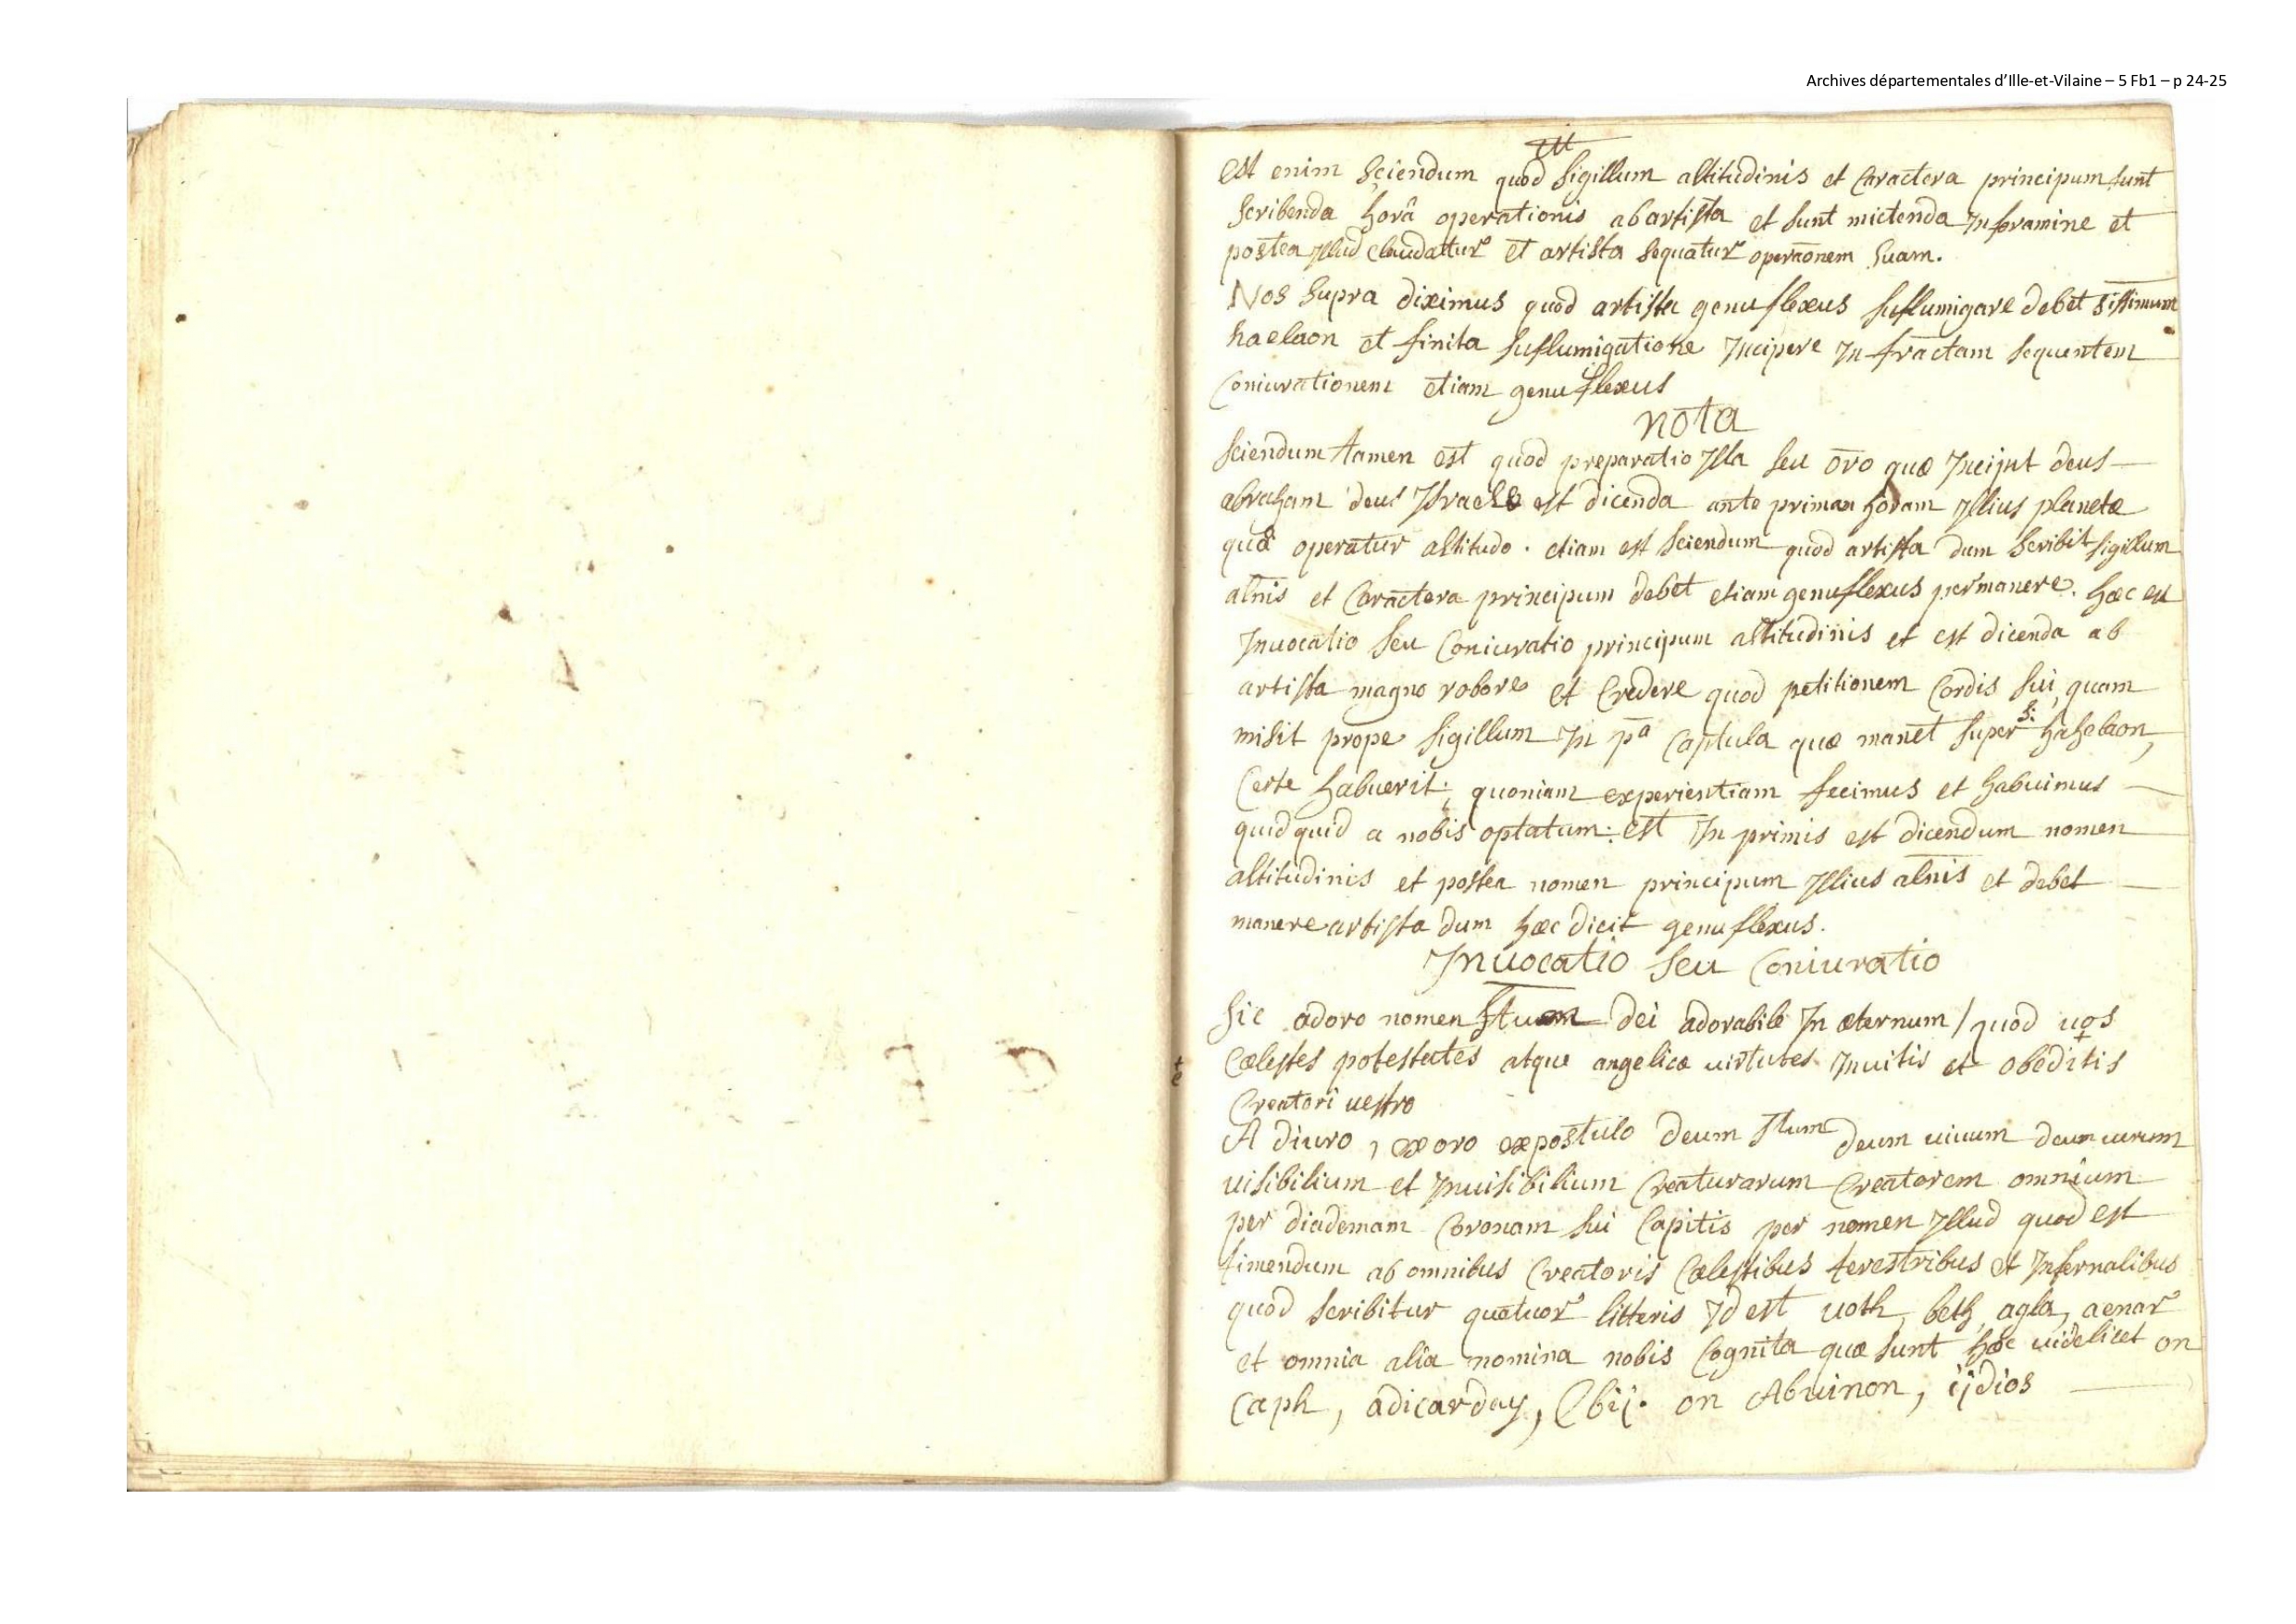 Archives départementales d'Ille-et-Vilaine – 5 Fb1 – p 24-25
est enim sciendum quod sigillum altitudinis et Caractera principum sunt
scribenda horâ operationis ab artista et sunt mictenda In foramine et
postea Illud claudattur et artista sequatur operaōnem suam.
Nos supra diximus quod artista genuflexus suflumigare debet
haelaon et finita suflumigatione Incipere In fractam sequentem
Coniurationem etiam genuflexus
nota
sciendum tamen est quod preparatio Illa seu ōro quæ Incipit deus
abraham deus Israel est dicenda ante priman horam Illius planetæ
quâ operatur altitudo. etiam est sciendum quod artista dum scribit sigillum
altnis et Caractera principum debet etiam genuflexus permanere. hæc est
Inuocatio seu Coniuratio principum altitudinis et est dicenda ab
artista magno robore et Credere quod petitionem Cordis sui, quam
misit prope sigillum In pa Captula quæ manet super s: hahelaon,
Certe habuerit; quoniam experientiam fecimus et habuimus
quidquid a nobis optatum: est In primis est dicendum nomen
altitudinis et postea nomen principum Illius alnis et debet
manere artista dum hæc dicit genuflexus.
Inuocatio seu Coniuratio
Sic adoro nomen dei adorabile In æternum / quod uos
Cælestes potestates atque angelicæ uirtutes Inuitis et obeditis
Creatori uestro
A diuro, exoro expostulo deum stum deum uiuum deum uerum
uisibilium et Inuisibilium Creaturarum Creatorem omnium
per diademam Coronam sui Capitis per nomen Illud quod est
timendum ab omnibus Creatoris Cælestibus terestribus et Infernalibus
quod scribitur quatuor litteris Id est uoth, beth, agla, aenar
et omnia alia nomina nobis Cognita quæ sunt hæc uidelicet on
Caph, adicarday, Ebij. on Abuinon, ijdios